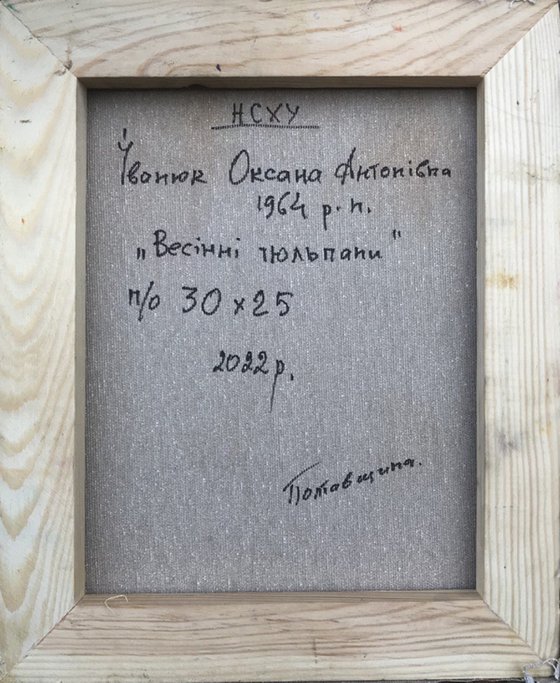 НСХУ
Іванюк Оксана Антонівна
1964 р.н.
„Весінні тюльпани"
п/о 30 х 25
2022 р.
Полтавщина.